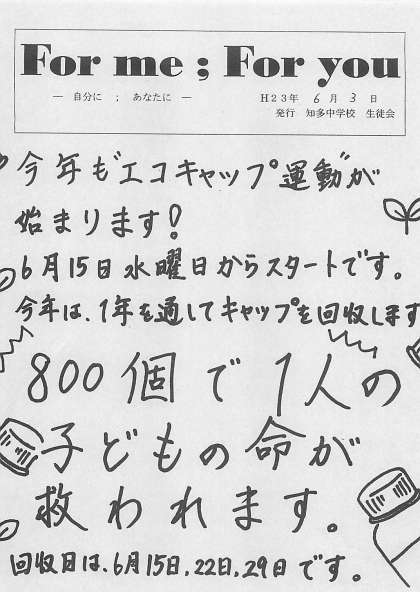 For me ; For you
― 自分に ; あなたに ―
H23年 6月 3日
発行 知多中学校 生徒会
今年も"エコキャップ運動"が
始まります!
6月15日水曜日からスタートです。
今年は、1年を通してキャップを回収します
800個で1人の
子どもの命が
救われます。
回収日は、6月15日,22日,29日です。